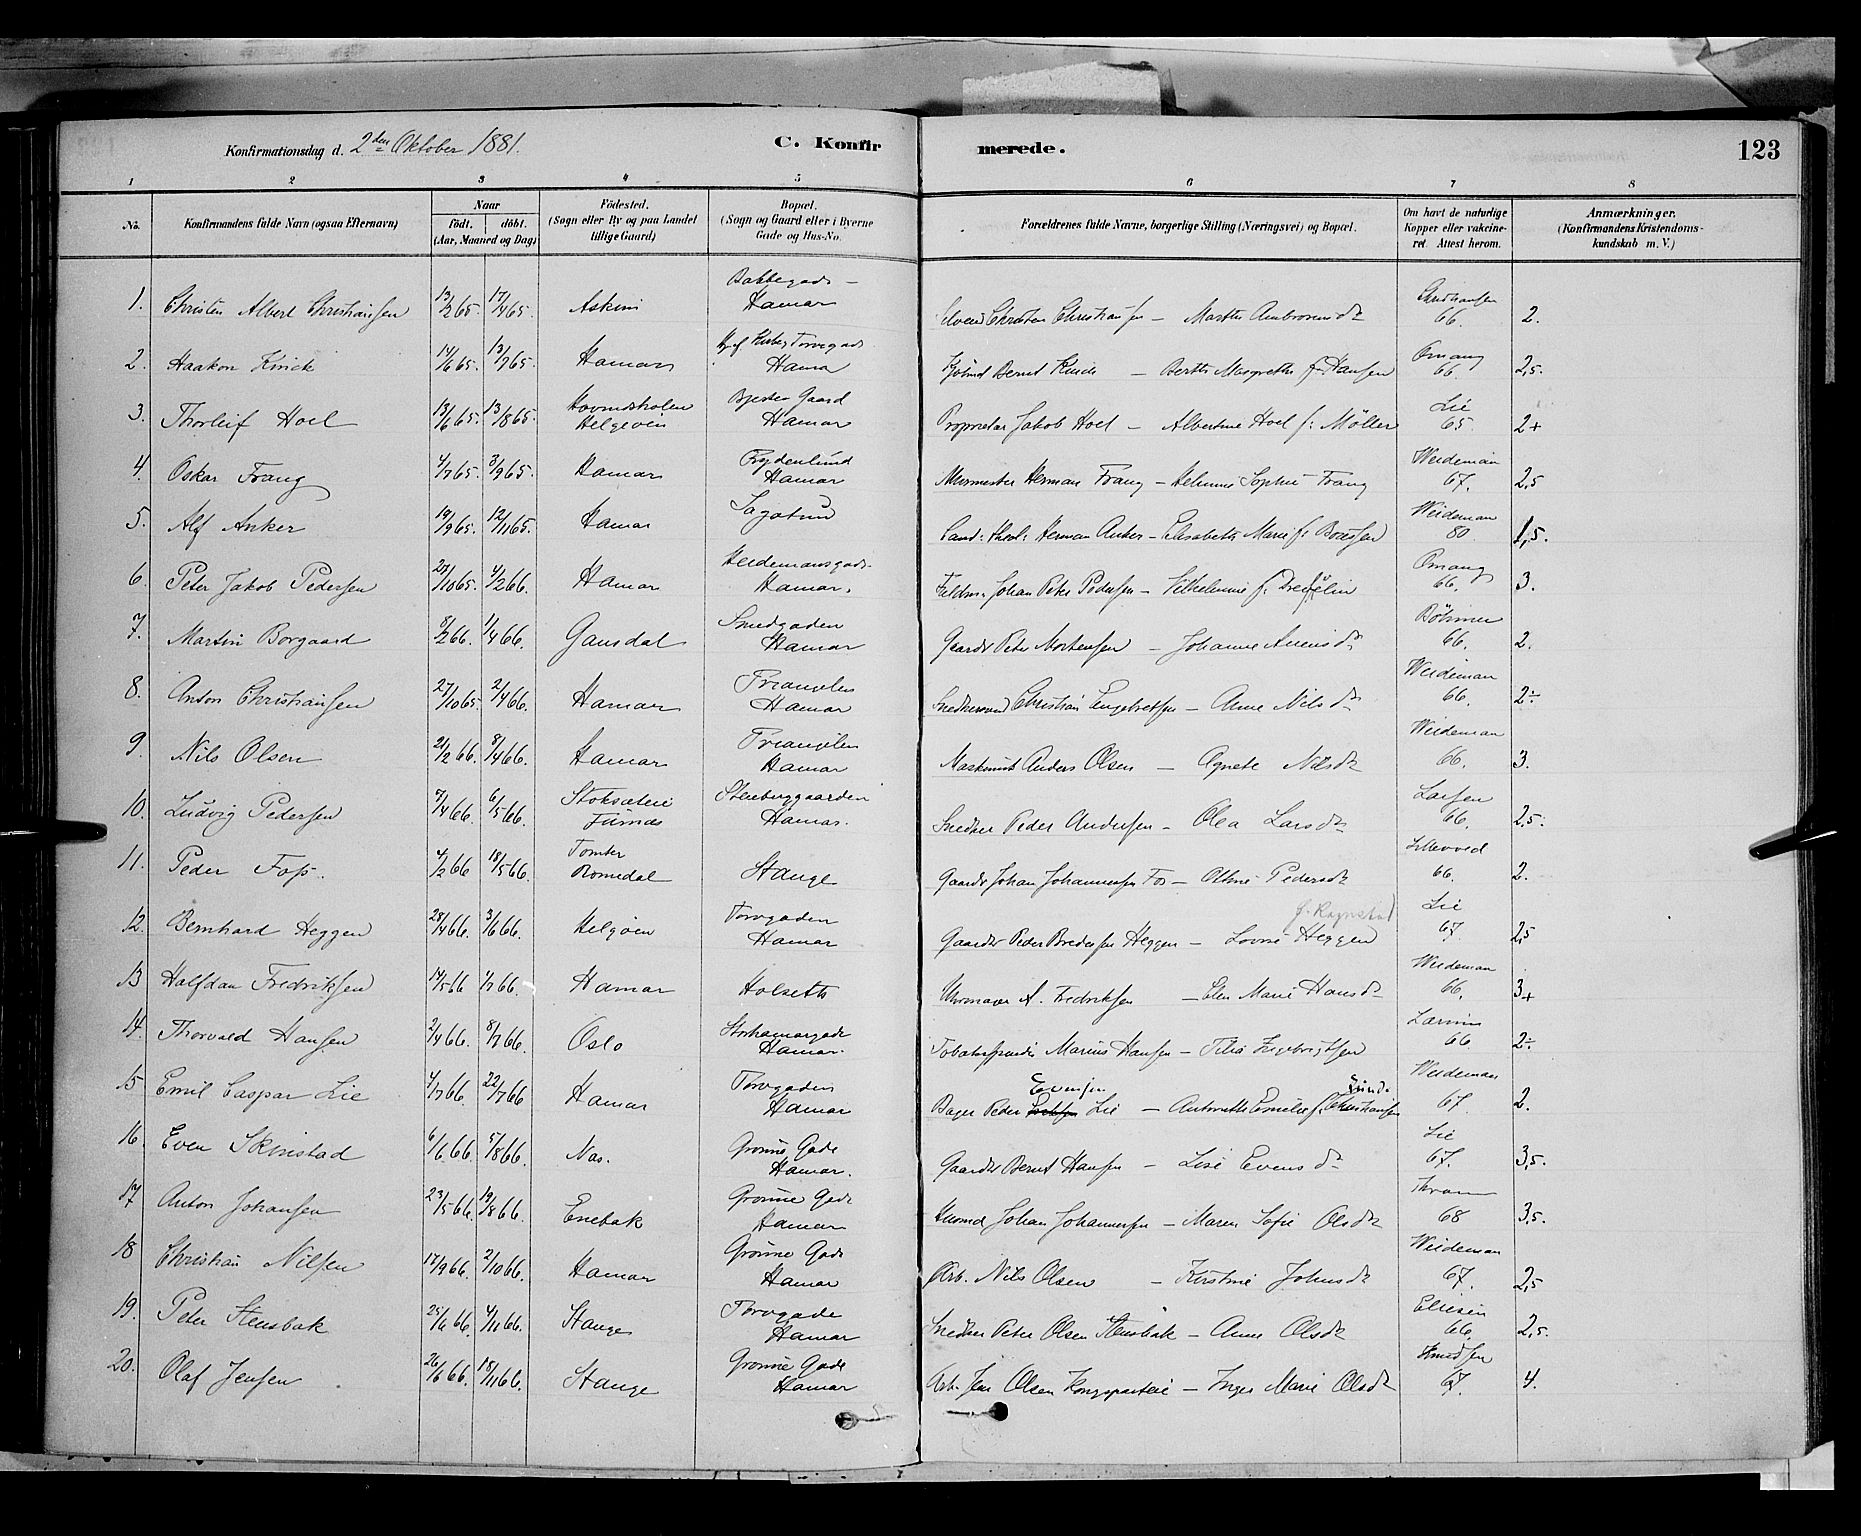 Konfirmationsdag d. 2den Oktober 1881.
C. Konfirmerede.
123
1 2 3 4 5 6 7 8
No.
Konfirmandens fulde Navn (ogsaa Efternavn)
Naar
födt. döbt.
(Aar, Maaned og Dag)
Födested.
(Sogn eller By og paa Landet
tillige Gaard)
Bopæl.
(Sogn og Gaard eller i Byerne
Gade og Hus-No.
Forældrenes fulde Navne, borgerlige Stilling (Næringsvei) og Bopæl.
Om havt de naturlige
Kopper eller vakcine-
ret. Attest herom.
Anmærkninger.
(Konfirmandens Kristendoms-
kundskab m. V.)
1. Christen Albert Christiansen 13/2 65. 17/4 65. Askim Bakkegade - Hamar Christen Christiansen - Marthe Ambrosensdr Christiansen 66. 2.
2. Haakon Kinck 14/6 65. 13/7 65. Hamar Torvegade Hamar Bernt Kinck - Berthe Margrethe f. Hansen Omang 66. 2,5.
3. Thorleif Hoel 13/6 65. 13/8 65. Helgøen Gaard Hamar Proprietær Jakob Hoel - Albertine Hoel f. Möller Lie 65. 2+
4. Oskar Frang 4/7 65. 3/9 65. Hamar Frydenlund Hamar Murmester Herman Frang - Helmine Sophie Frang Weideman 67. 2,5
5. Alf Anker 19/9 65. 12/11 65. Hamar Sagatun Cand: theol: Herman Anker - Elisabeth Marie f. Weideman 80. 1,5.
6. Peter Jakob Pedersen /10 65. 4/2 66. Hamar Heidemansgade Hamar. Johan Peter Pedersen - Vilhelmine f. Omang 66. 3.
7. Martin Borgaard 8/2 66. 1/4 66. Gausdal Smedgaden Hamar Gaardr Peter Mortensen - Johanne Böhmer 66. 2.
8. Anton Christiansen 27/10 65. 2/4 66. Hamar Triangelen Hamar Snedkersvend Christian Engebretsen - Anne Nilsdr Weideman 66. 2÷
9. Nils Olsen 21/2 66. 8/4 66. Hamar Triangelen Hamar Maskinist Anders Olsen - Agnete Nilsdr Weideman 66. 3.
10. Ludvig Pedersen 7/4 66. 6/5 66. Furnæs Stenberggaarden Hamar. Snedker Peder Andersen - Olea Larsdr Larsen 66. 2,5.
11. Peder Foss. 4/2 66 18/5 66. Tomter Romedal Stange Gaardr Johan Johannessen Fos - Othine Pedersdr 66. 2.
12. Bernhard Heggen 28/4 66. 3/6 66. Helgøen Torvgaden Hamar Gaardr Peder Bredesen Heggen - Lovise Heggen Lie 67. 2,5
13 Halfdan Fredriksen 14/5 66 1/7 66. Hamar Holseth Uhrmager A. Fredriksen - Elen Marie Hansdr Weideman 66. 3+
14. Thorvald Hansen 2/4 66. 8/7 66. Oslo Storhamargade Hamar. Marius Hansen - Thea Ingebrigtsen 66 2÷
15 Emil Caspar Lie 4/7 66. 22/7 66 Hamar Torvgaden Hamar Bager Peder Evensen Lie - Emilie f. Lund Weideman 67. 2.
16. Even Skinstad 6/6 66. 5/8 66. Næs. Grönne Gade Hamar. Gaardr Bernt Hansen - Lise Evensdr Lie 67. 3,5.
17 Anton Johansen 23/5 66. 19/8 66. Enebak Grönne Gade Hamar Husmd Johan Johannessen - Maren Sofie Olsdr 68 3,5.
18 Christian Nilsen 17/9 66. 2/10 66. Hamar Grönne Gade Hamar Arb. Nils Olsen - Kirstine Johnsdr Weideman 67. 2,5
19. Peter Stensbak 25/6 66. 4/11 66. Stange Torvgade Hamar Snedker Peter Olsen Stensbak - Anne Olsdr Ellesen 66. 2,5.
20. Olaf Jensen 26/6 66. 18/11 66. Stange Grönne Gade Hamar Arb. Jens Olsen - Inger Marie Olsdr Knudsen 67. 4.